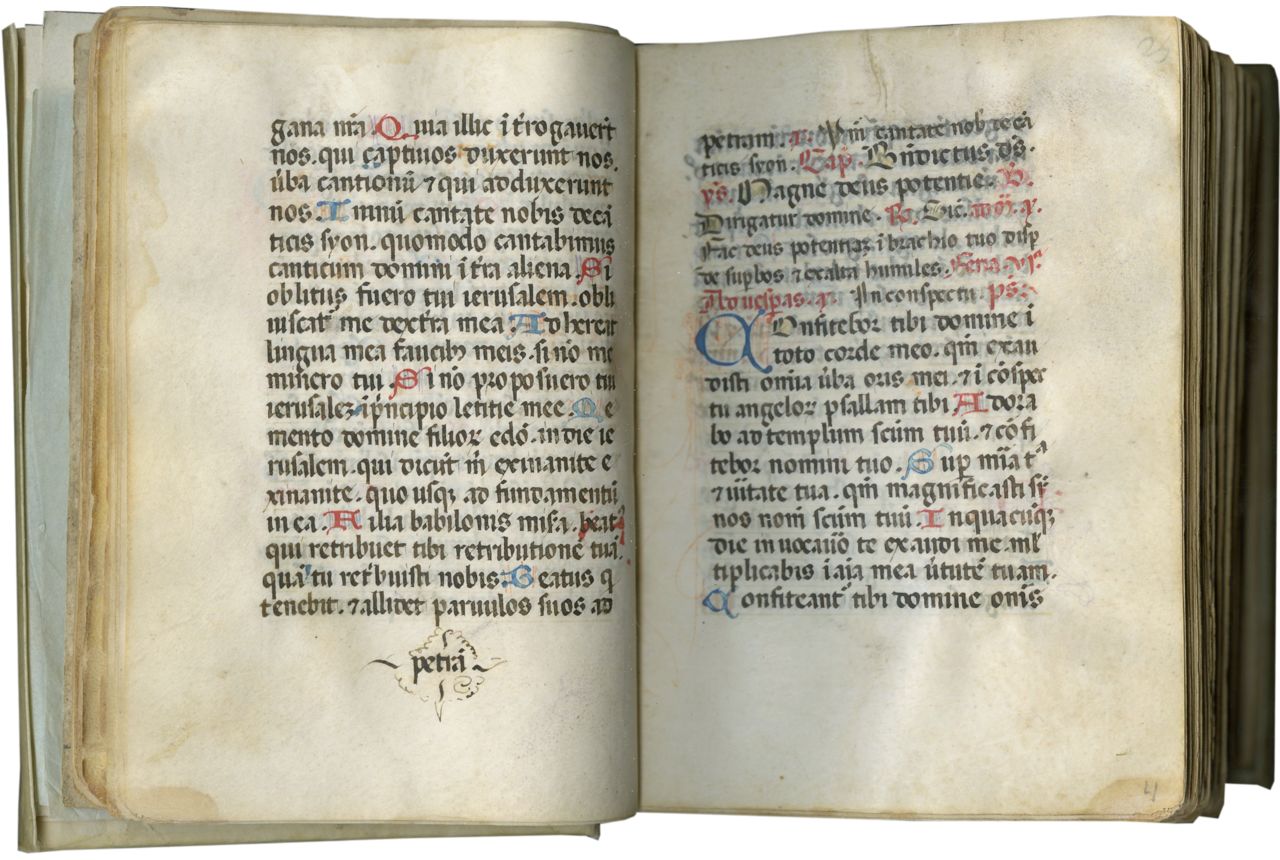 gana nr̄a. Quia illic i t̄rogauer̄t
nos. qui captiuos duxerunt nos.
ūba cantionū ⁊ qui adduxerunt
nos. Imnū cantate nobis de cā
ticis syon. quomodo cantabimus
canticum domini i t̄ra aliena. Si
oblitus fuero tui ierusalem. obli
uiscat᷑ me dext̄ra mea. Adhereat
lingua mea faucibꝫ meis. si nō me
minero tui. Si nō proposuero tui
ierusalēꝫ. i p̄ncipio letitie mee. Me
mento domine filioꝝ edō. in die ie
rusalem. qui dicūt m̄ exinanite e
xinanite. quo usqꝫ ad fundamentū
in ea. Filia babilonis mis̄a. beat᷒
qui retribuet tibi retributionē tuā.
quā tu ret̄buisti nobis. Beatus q
tenebit. ⁊ allidet paruulos suos ad
petrā
petram. a. Ymn̄ cantate nob̄ de cā
ticis syon. Cap̄. Bn̄dictus ds̄.
ys. Magne deus potentie. V.
Dirigatur domine. R. Sic. ad m̄. a.
Fac deus potentiaꝫ i brachio tuo disp̄
de sup̄bos ⁊ exalta humiles. Feria. vi.
Ad uesp̄as. a. In conspectu. ps.
Confitebor tibi domine i
toto corde meo. qm̄ exau
disti om̄ia ūba oris mei. ⁊ i cōspec
tu angeloꝝ psallam tibi. Adora
bo ad templum scūm tuū. ⁊ cōfi
tebor nomini tuo. Sup̄ mīa t᷒
⁊ ūitate tua. qm̄ magnificasti sr̄
nos nom̄ scūm tuū. In quacūqꝫ
die inuocauō te exaudi me. ml̄
tiplicabis i aīa mea ūtutē tuam.
Confiteant᷑ tibi domine om̄s
4